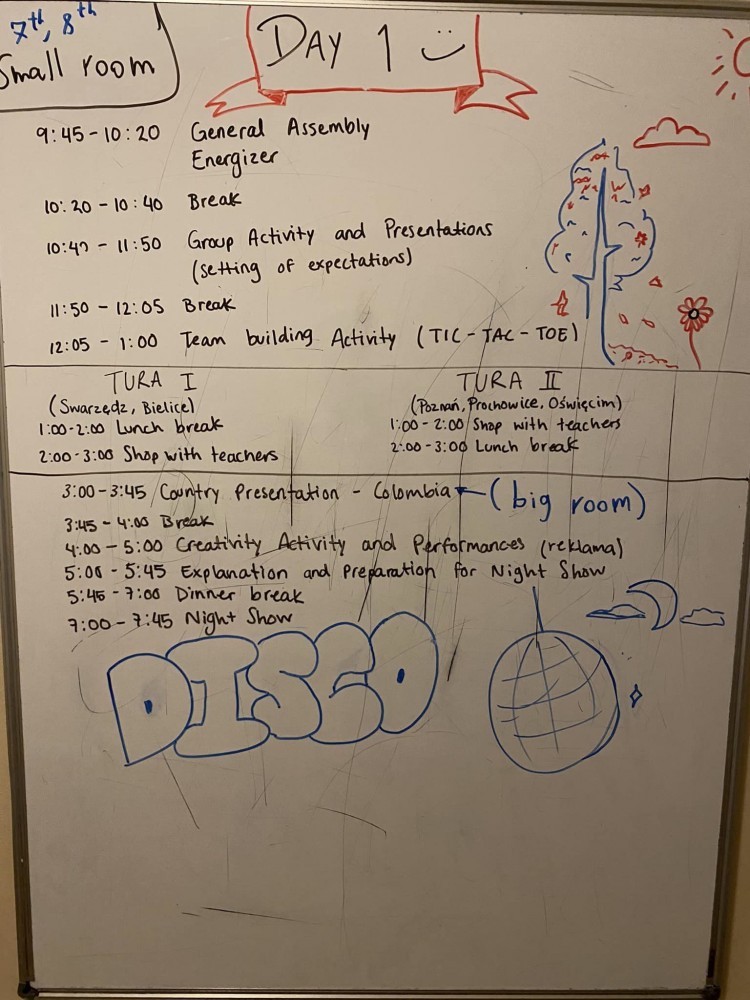 7th, 8th
Small room
DAY 1
9:45 - 10:20 General Assembly
Energizer
10:20 - 10:40 Break
10:40 - 11:50 Group Activity and Presentations
(setting of expectations)
11:50 - 12:05 Break
12:05 - 1:00 Team building Activity (TIC-TAC-TOE)
TURA I
(Swarzędz, Bielice)
1:00-2:00 Lunch break
2:00-3:00 Shop with teachers
TURA II
(Poznań, Prochowice, Oświęcim)
1:00 - 2:00 Shop with teachers
2:00 - 3:00 Lunch break
3:00 - 3:45 Country Presentation - Colombia (big room)
3:45 - 4:00 Break
4:00 - 5:00 Creativity Activity and Performances (reklama)
5:00 - 5:45 Explanation and Preparation for Night Show
5:45 - 7:00 Dinner break
7:00 - 7:45 Night Show
DISCO